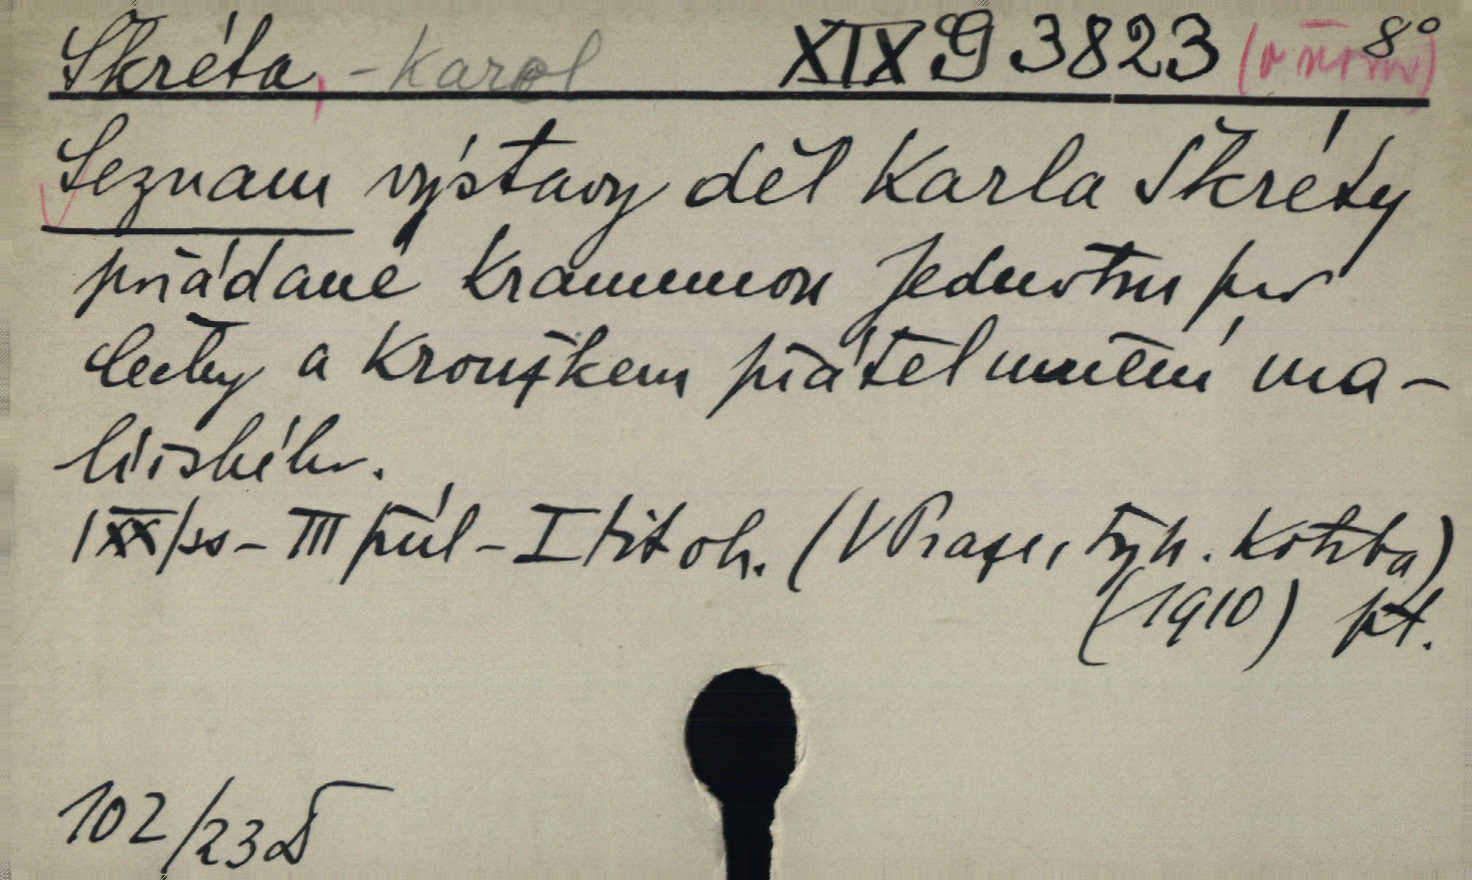 Škréta, - Karel XIX G 3823 8°
Seznam výstavy děl Karla Škréty
pořádané Krasoumnou Jednotou pro
Čechy a Kroužkem přátel umění ma-
lířského.
IXX/ss - III příl - I tit ob. (V Praze, Typ. Kotrba)
(1910) pt.
102/23